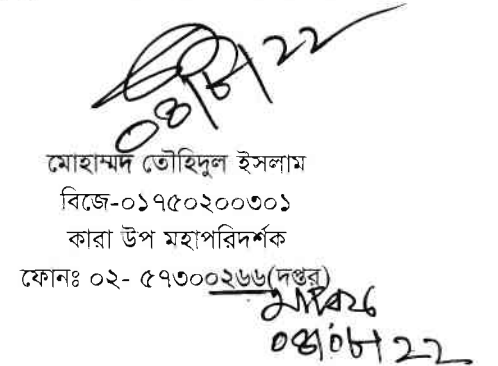 ০৪/০৮/২২
মোহাম্মদ তৌহিদুল ইসলাম
বিজে-০১৭৫০২০০৩০১
কারা উপ মহাপরিদর্শক
ফোনঃ ০২- ৫৭৩০০২৬৬(দপ্তর)
০৪/০৮/২২